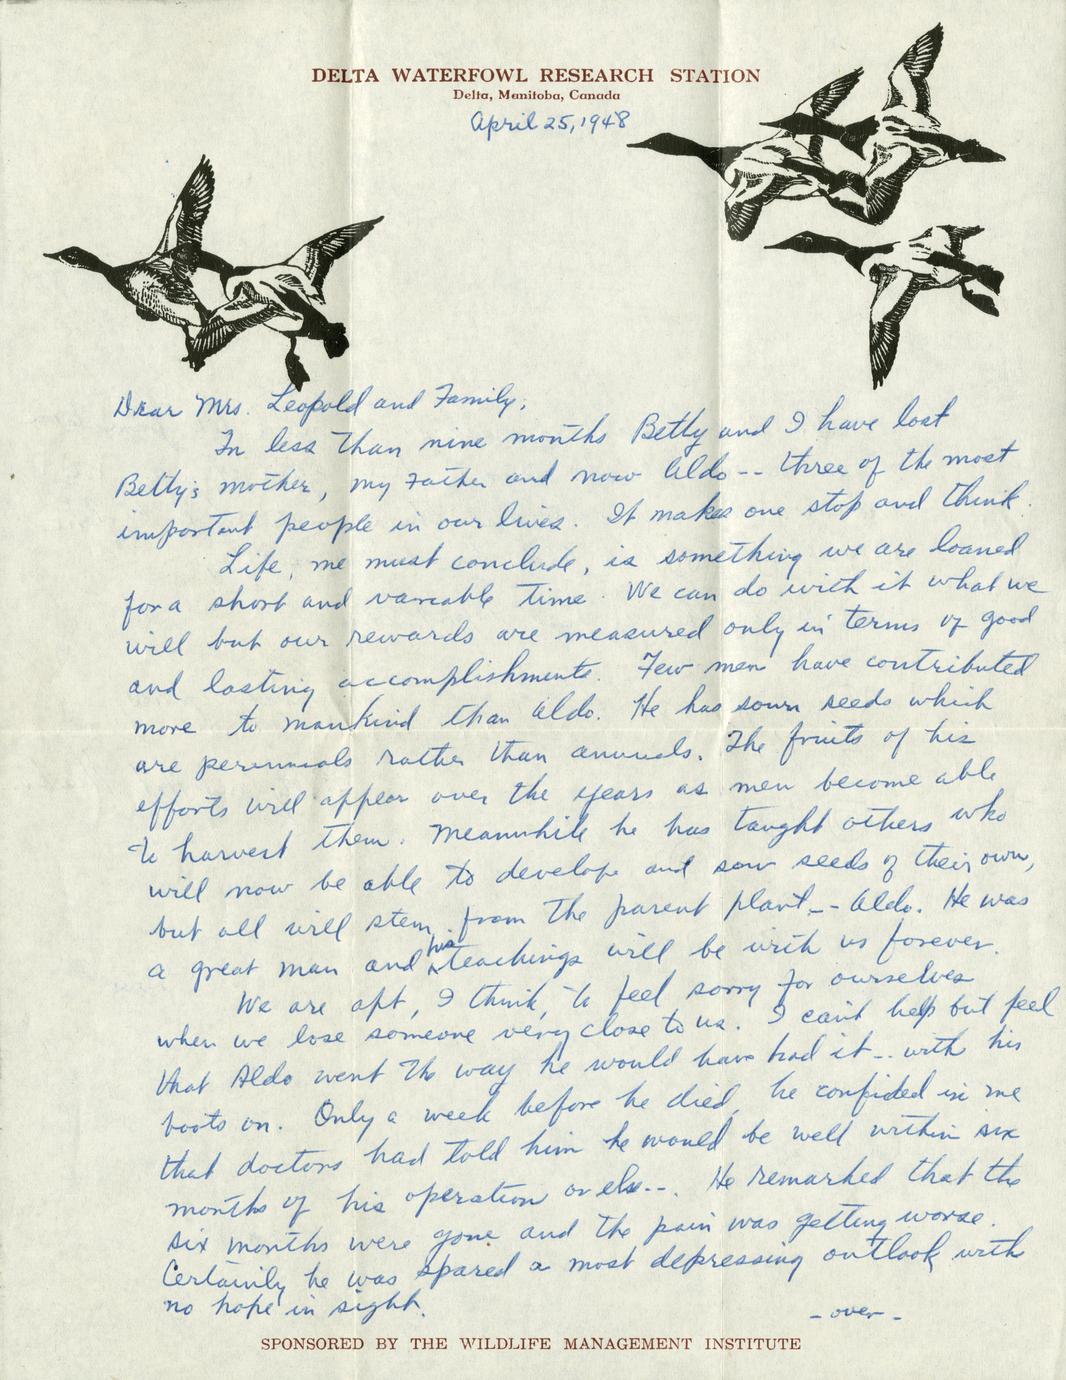 DELTA WATERFOWL RESEARCH STATION
Delta, Manitoba, Canada
April 25, 1948
Dear Mrs. Leopold and Family;
In less than nine months Betty and I have lost
Betty's mother, my Father and now Aldo -- three of the most
important people in our lives. It makes one stop and think.
Life, me must conclude, is something we are loaned
for a short and variable time. We can do with it what we
will but our rewards are measured only in terms of good
and lasting accomplishments. Few men have contributed
more to mankind than Aldo. He has sown seeds which
are perennials rather than annuals. The fruits of his
efforts will appear over the years as men become able
to harvest them. Meanwhile he has taught others who
will now be able to develope and sow seeds of their own,
but all will stem from the parent plant -- Aldo. He was
a great man and his teachings will be with us forever.
We are apt, I think, to feel sorry for ourselves
when we lose someone very close to us. I can't help but feel
that Aldo went the way he would have had it -- with his
boots on. Only a week before he died, he confided in me
that doctors had told him he would be well within six
months of his operation or else--. He remarked that the
six months were gone and the pain was getting worse.
Certainly he was spared a most depressing outlook with
no hope in sight.
- over -
SPONSORED BY THE WILDLIFE MANAGEMENT INSTITUTE